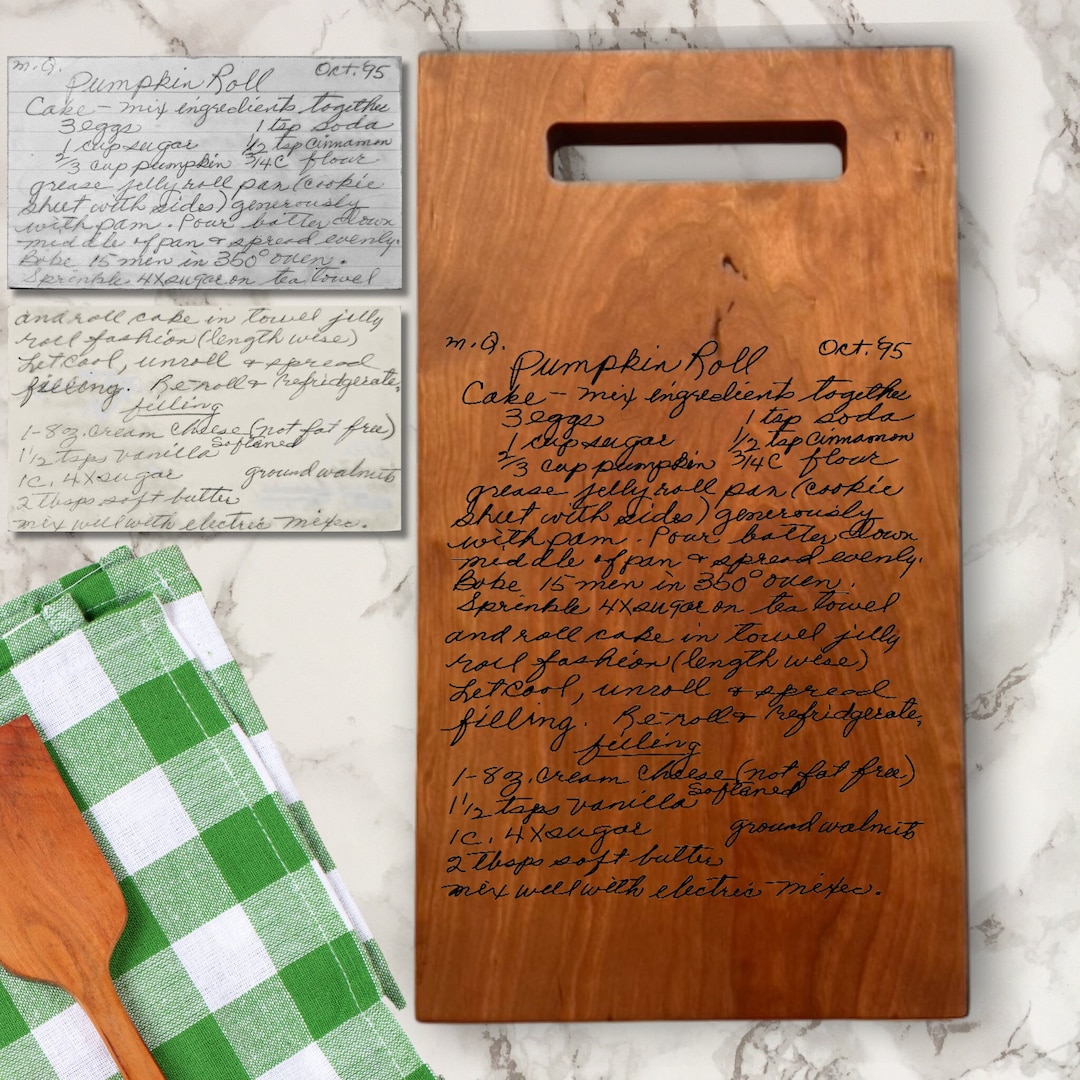 m.Q. Oct. 95
Pumpkin Roll
Cake - mix ingredients together
3 eggs 1 tsp soda
1 cup sugar 1/2 tsp cinnamon
2/3 cup pumpkin 3/4 C flour
grease jelly roll pan (cookie
sheet with sides) generously
with pam. Pour batter down
middle of pan & spread evenly.
Bake 15 min in 350° oven.
Sprinkle 4X sugar on tea towel
and roll cake in towel jelly
roll fashion (length wise)
Let Cool, unroll & spread
filling. Re-roll & refridgerate.
filling
1-8 oz. cream cheese (not fat free)
Softened
1 1/2 tsps vanilla
1 C. 4X sugar ground walnuts
2 tbsps soft butter
mix well with electric mixer.
m.Q. Oct. 95
Pumpkin Roll
Cake - mix ingredients together
3 eggs 1 tsp soda
1 cup sugar 1/2 tsp cinnamon
2/3 cup pumpkin 3/4 C flour
grease jelly roll pan (cookie
sheet with sides) generously
with pam. Pour batter down
middle of pan & spread evenly.
Bake 15 min in 350° oven.
Sprinkle 4X sugar on tea towel
and roll cake in towel jelly
roll fashion (length wise)
Let Cool, unroll & spread
filling. Re-roll & refridgerate.
filling
1-8 oz. cream cheese (not fat free)
Softened
1 1/2 tsps vanilla
1 C. 4X sugar ground walnuts
2 tbsps soft butter
mix well with electric mixer.